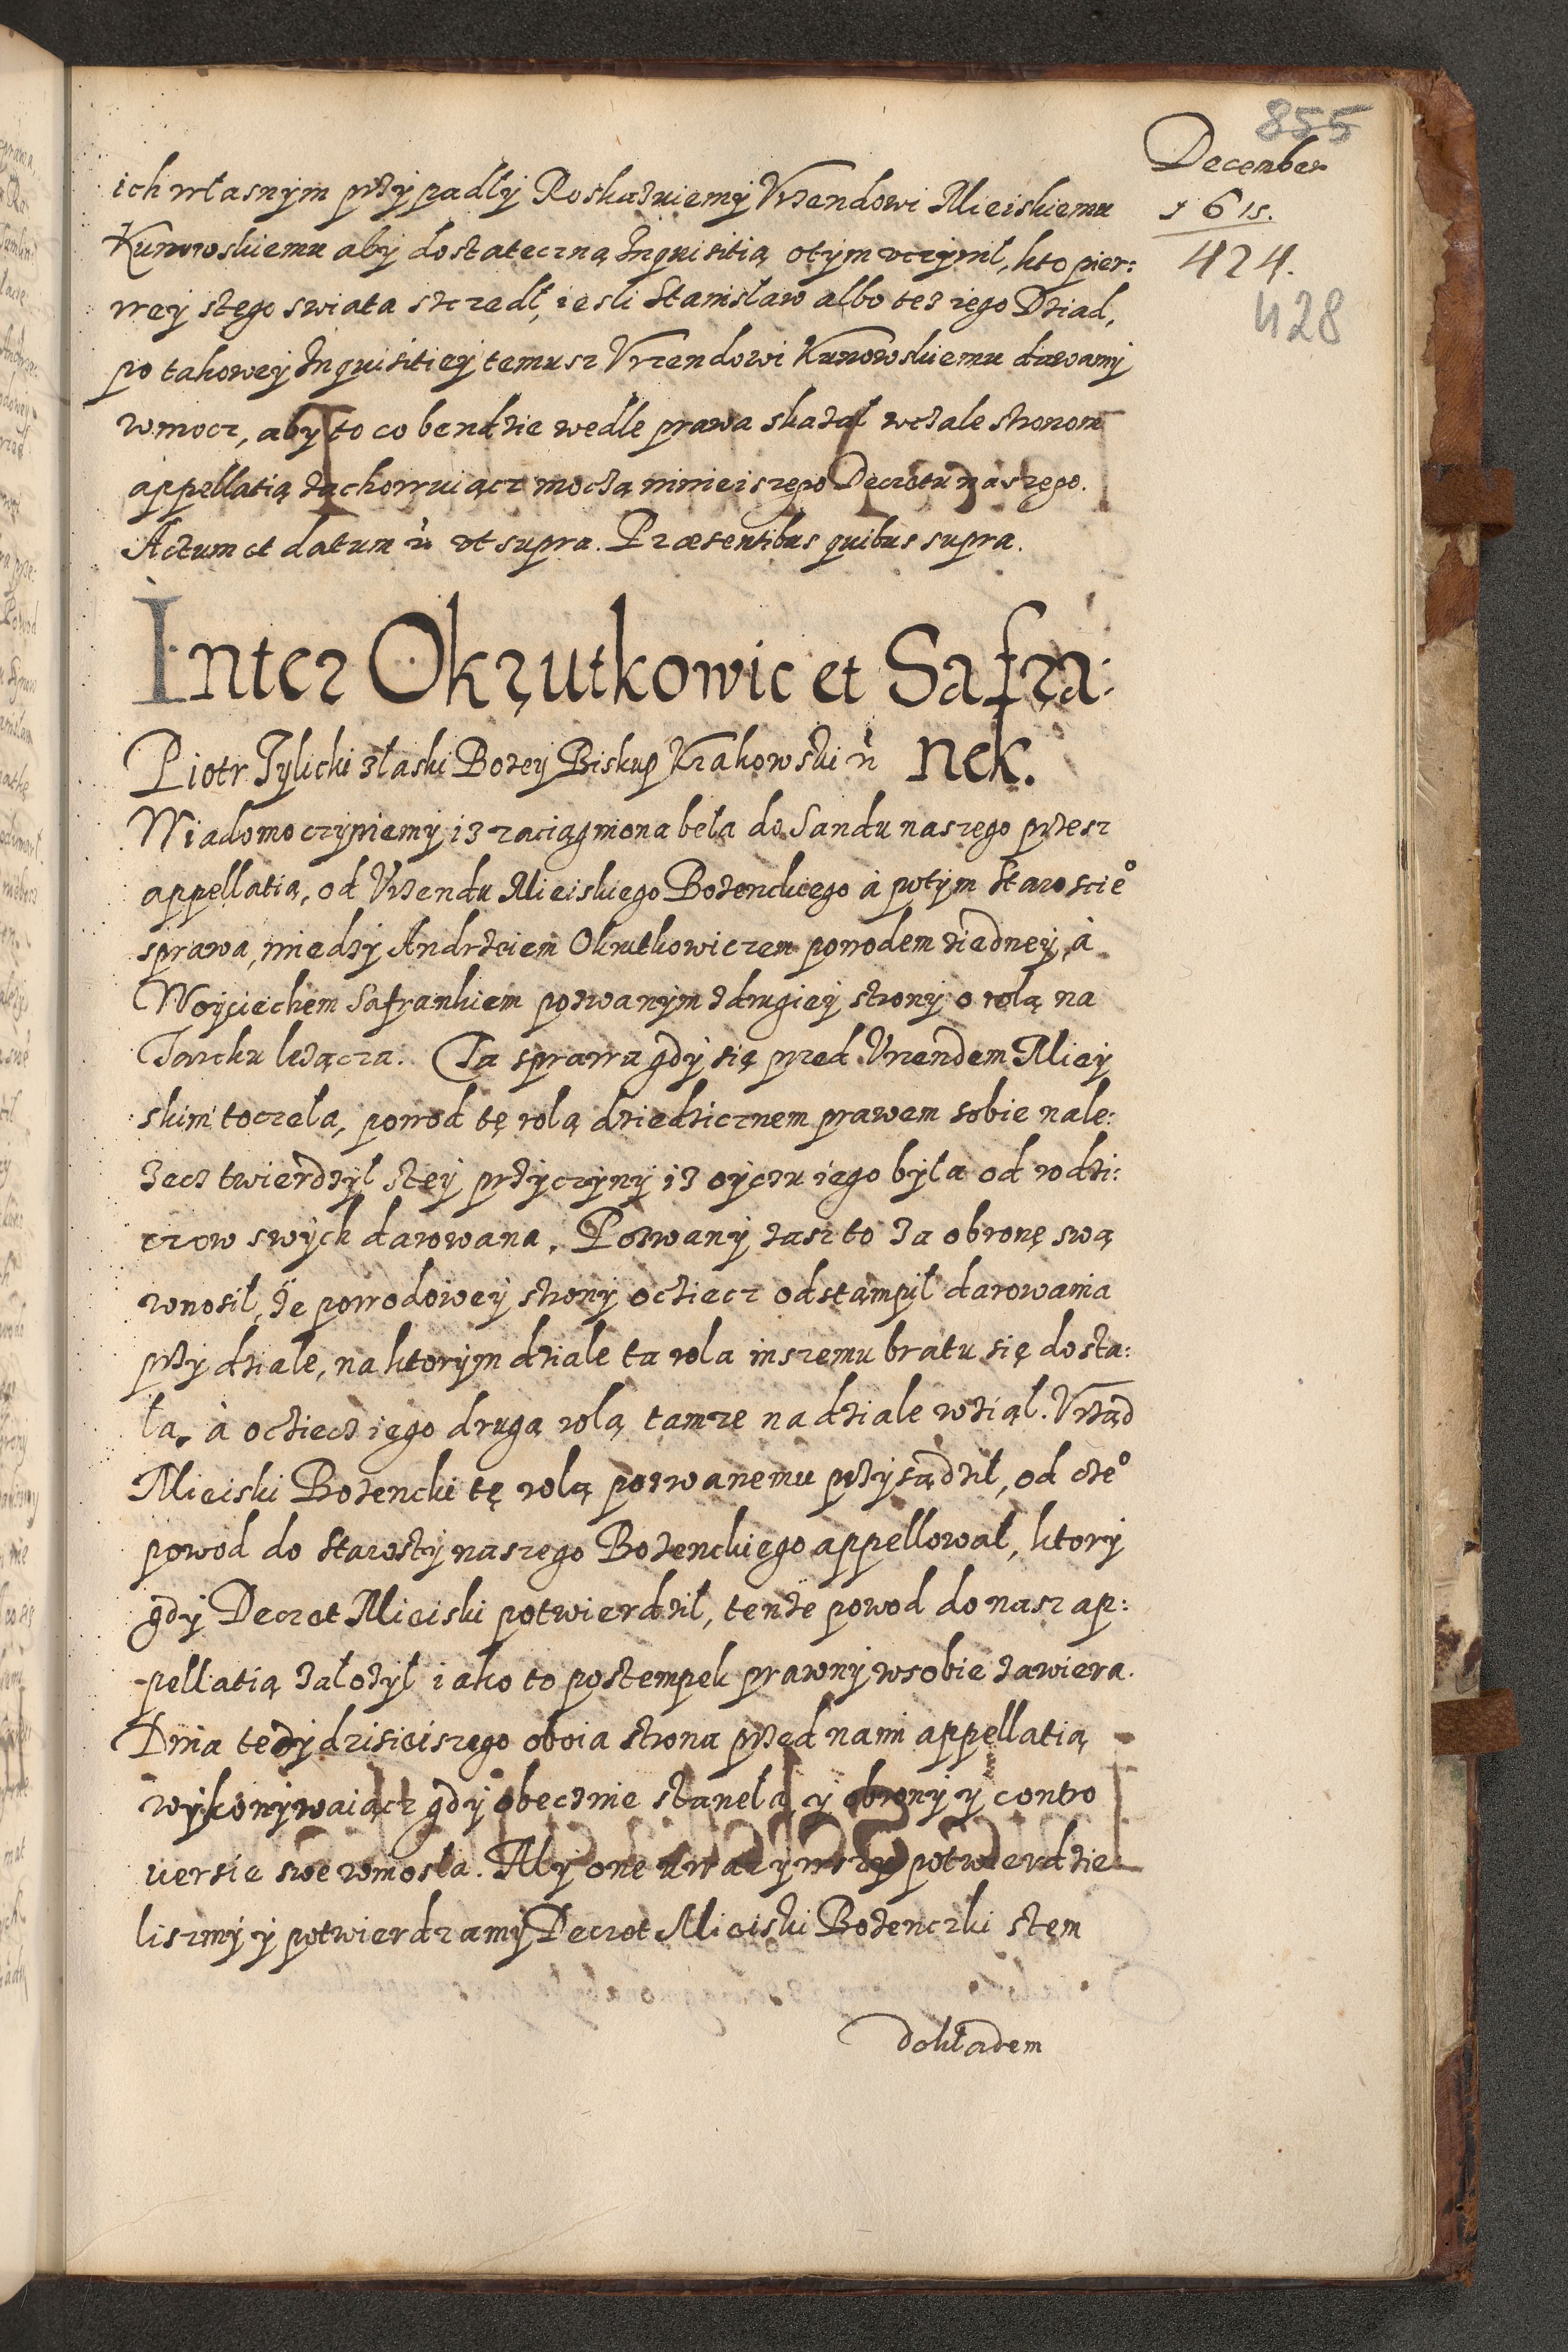 855
December
1615.
424.
428
ich własnym przypadły Roskazuiemy Vrzendowi Mieiskiemu
Kunowskiemu aby dostateczną Inquisitią otym vczynił, kto pier:
wey stego swiata szczedł, iesli Stanisław albo tez iego Dziad,
po takowey Inquisitiey temusz Vrzendowi Kunowskiemu dawamy
wmocz, aby to co bendzie wedle prawa skazał wczale stronom
appellatią zachowuiącz moczą ninieiszego Decretu naszego.
Actum et datum ut supra. Præsentibus quibus supra.
Inter Okrutkowic et Safra:
nek.
Piotr Tylicki złaski Bozey Biskup Krakowski
Wiadomo czyniemy iz zaciągniona beła do Sandu naszego przesz
appellatią, od Vrzendu Mieiskiego Bozenckiego à potym Staroście°
sprawa, miedzy Andrzeiem Okrutkowiczem powodem ziedney, à
Woyciechem Safrankiem pozwanym zdrugiey strony o rolą na
Tarcku lezącza. Ta sprawa gdy się przed Vrzendem Miey
skim toczeła, powod tę rolą dziedzicznem prawem sobie nale:
zecz twierdzył stey przyczyny iz oyczu iego była od rodzi:
czow swych darowana. Pozwany zasz to za obronę swą
wnosił, że powodowey strony ocziecz odstąmpył darowania
przy dziale, na ktorym dziale ta rola inszemu bratu się dosta:
ła, à ocziecz iego drugą rolą tamze na dziale wziął. Vrząd
Mieiski Bozencki tę rolą pozwanemu przysądził, od cze°
powod do Starosty naszego Bozenckiego appellował, ktory
gdy Decret Mieiski potwierdził, tenże powod do nasz ap:
pellatią założył iako to postempek prawny wsobie zawiera.
Dnia tedy dzisieiszego oboia strona przed nami appellatią
wykonywaiącz gdy obecznie staneła, y obrony y contro
uersie swe wniosła. My one uważywszy potwierdzie
liszmy y potwierdzamy Decret Mieiski Bozenczki stem
dokładem